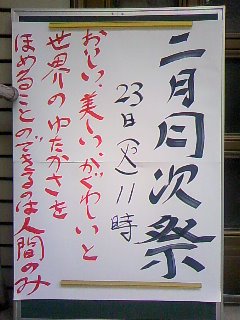 二月月次祭
23日(火)11時
おいしい、美しい、かぐわしいと
世界のゆたかさを
ほめることのできるのは人間のみ